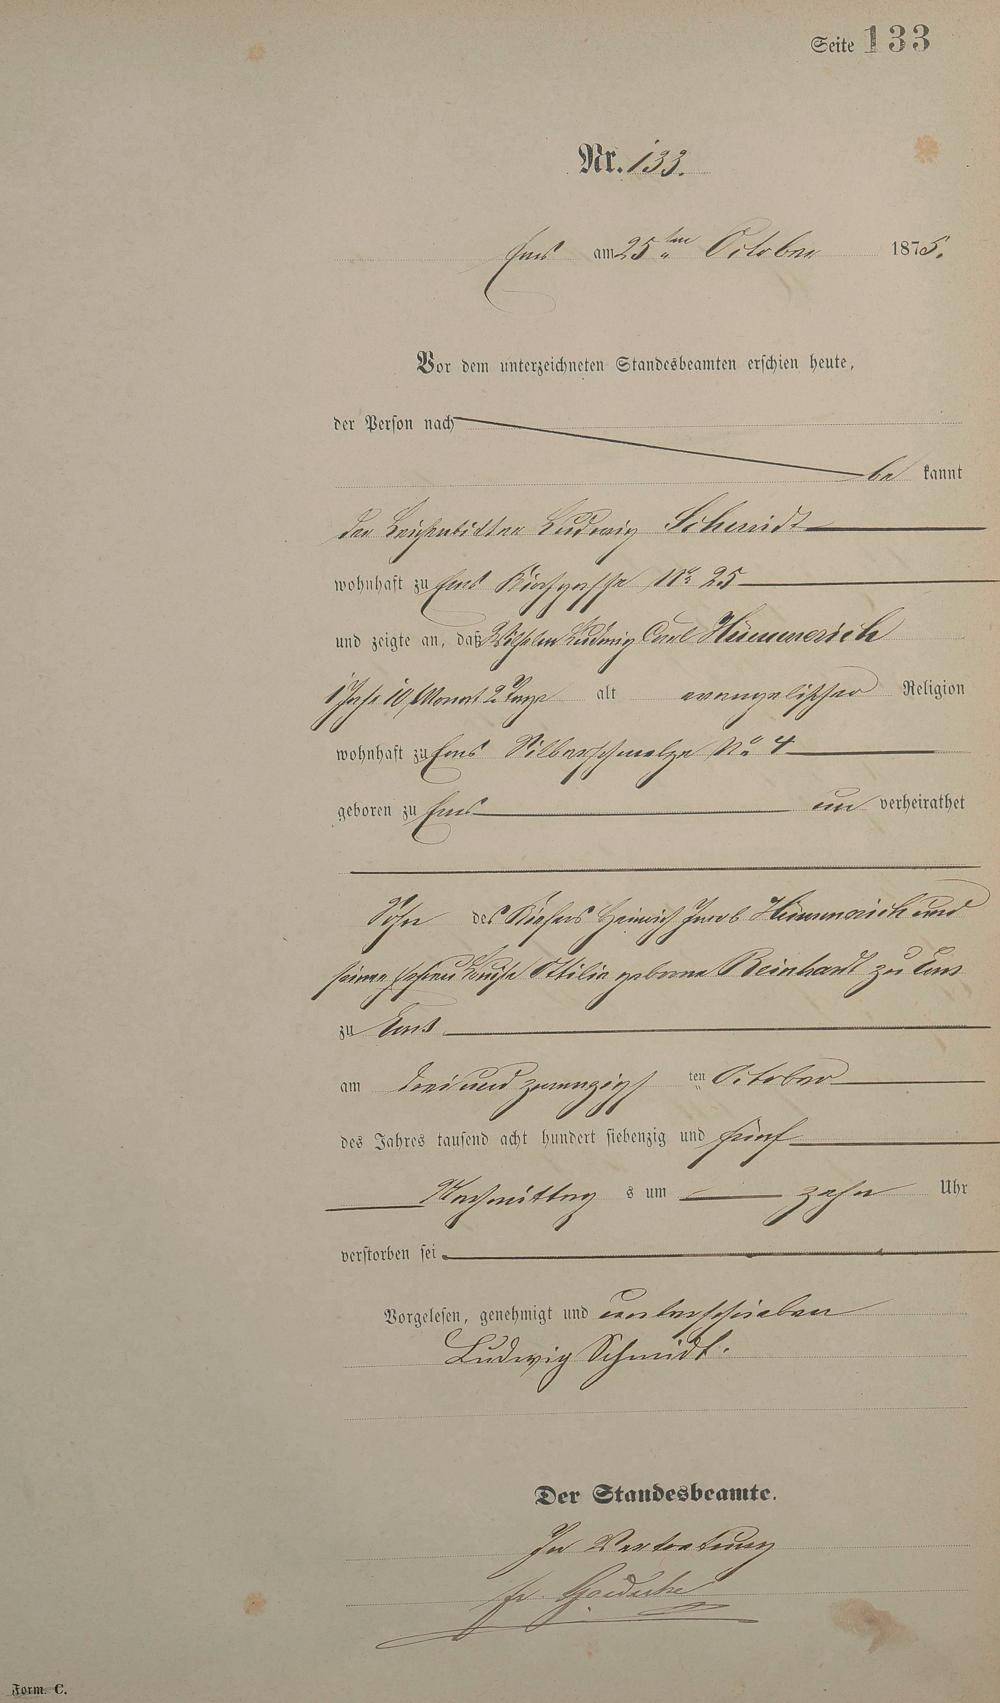 Seite 133
Nr. 133.
Ems am 25ten October 1875.
Vor dem unterzeichneten Standesbeamten erschien heute,
der Person nach
be kannt
der Leichenbitter Ludwig Schmidt
wohnhaft zu Ems Kirchgasse No 25
und zeigte an, daß Wilhelm Ludwig Carl Hümmerich
1 Jahr 10 Monat 2 Tage alt evangelischer Religion
wohnhaft zu Ems Silberschmelze No 4
geboren zu Ems un verheirathet
Sohn des Küfers Heinrich Jacob Hümmerich und
seiner Ehefrau Louise Ottilie geborne Reinhardt zu Ems
zu Ems
am drei und zwanzigsten October
des Jahres tausend acht hundert siebenzig und fünf
Nachmittags um zehn Uhr
verstorben sei
Vorgelesen, genehmigt und unterschrieben
Ludwig Schmidt.
Der Standesbeamte.
In Vertretung
Form. C.